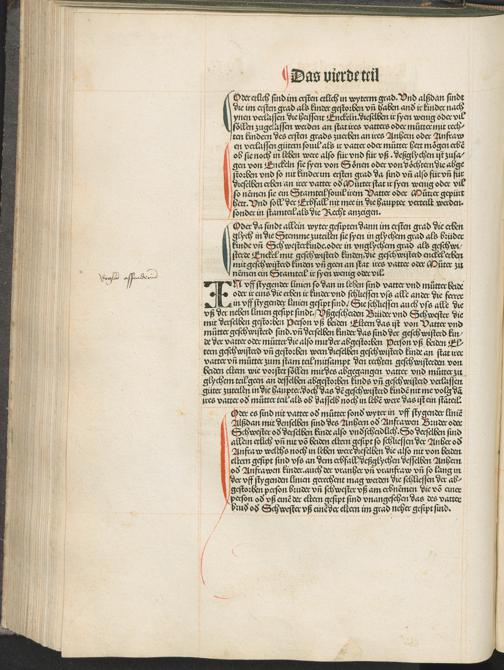 Das vierde teil
Oder etlich sind im ersten etlich in wyterm grad. Und alßdan sindt
die im ersten grad als kinder gestorben vñ haben and ir kinder nach
ynen verlassen die heissent Enckeln. dieselben ir syen wenig oder vil
söllen zugelassen werden an stat ires vatters oder mütter mit rech-
ten kindern des ersten grads zu erben an ires Anhern oder Anfraw
en verlassen gütern souil als ir vatter oder mütter hett mögen erbē
ob sie noch in leben were also für und für vß. deßglychen ist zusa-
gen von Enckeln sie syen von Sönen oder von döchtern die abge
storben und so nit kinder im ersten grad da sind vñ also für vñ für
dieselben erben an irer vatter od Mütter stat ir syen wenig oder vil
so nēmen sie ein Stamteil souil irem Vatter oder Mütter gepürt
hett. Und soll der Erbfall nit mee in die haupter verteilt werden.
sonder in stamteil als die Recht anzeigen.
Oder da sindt allein wyter gesipten dann im ersten grad die erben
glych in die Stemme zuteilen sie syen in glychem grad als brüder
kinde vñ Schwesterkinde. oder in unglychem grad als geschwi-
sterde Enckel mit geschwisterd kinden. die geschwisterd enckel erben
mit geschwisterd kinden vñ geen an stat irer vatter oder Müter zu
nemen ein Stamteil ir syen wenig oder vil.
IN uff stygender linien so dan in leben sind vatter und mütter beide
oder ir eins die erben ir kinder und schliessen vss alle ander die ferrer
in uff stygender linien gesipt sind. Sie schliessen auch vss alle die
vß der neben linien gesipt sindt. Ußgescheiden Brüder und Schwester die
mit derselben gestorben Person vß beiden Eltern das ist von Vatter und
mütter geschwisterd sind. vñ derselben kinder das sind der geschwisterd kin-
der der vatter oder mütter die also mit der abgestorben Person vß beiden El-
tern geschwisterd vñ gestorben wern dieselben geschwisterd kinde an stat irer
vatter vñ mütter zum stam teil mitsampt den rechten geschwisterden von
beden eltern wie vorstet söllen mit des abgegangen vatter und mütter zu
glychem teil geen an desselben abgestorben kinds vñ geschwisterd verlassen
güter zuteiln in die haupter. doch das der geschwisterd kinde nit me volg dā
ires vatter od mütter teil als ob dasselb noch in lebē were das ist ein stāteil.
Oder es sind nit vatter od mütter sond wyter in uff stygender liniē
Alßdan mit denselben sind des Anhern od Anfrawen Bruder oder
Schwester od derselben kinde also underschedlich. So derselben sind
allein etlich vñ nit võ beiden eltern gesipt so schliessen der Anher od
Anfraw welchs noch in leben were dieselben die also nit von beiden
eltern gesipt sind vss an dem erbfall. deßglychen desselben Anhern
od Anfrawen kinder. auch der uranher vñ uranfraw vñ so lang in
der uff stygenden linien gerechent mag werden die schliessen der ab-
gestorben person bruder vñ schwester vß am erbnēmen die võ einer
person od vß eine der eltern gesipt sind unangesehen das des vatter
brud od Schwester vß eine der eltern im grad neher gesipt sind.